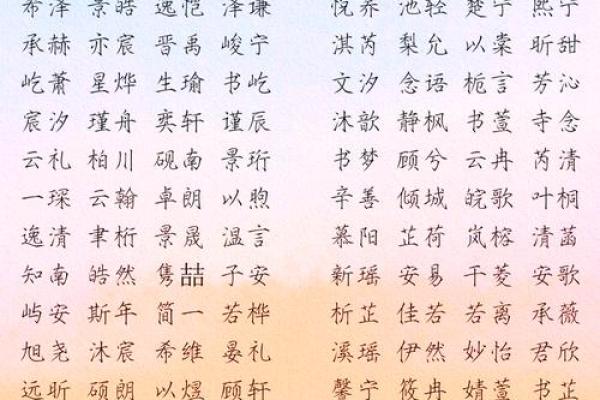 希泽 景皓 逸恺 泽谦 悦乔 池轻 楚宁 熙宁
承赫 亦宸 晋禹 峻宁 淇芮 梨允 以棠 昕甜
屹萧 星烨 生瑜 书屹 文汐 念语 栀言 芳沁
宸汐 瑾舟 奕轩 谨辰 沐歆 静枫 书萱 寺念
云礼 柏川 砚南 景珩 书梦 顾兮 云冉 芮清
一琛 云翰 卓朗 以煦 辛善 倾城 皖歌 叶桐
逸清 聿桁 景晟 温言 慕阳 芷荷 岚榕 清菡
知南 皓然 隽喆 子安 新瑶 安易 干菱 安歌
屿安 斯年 简一 若桦 析芷 佳若 若离 承薇
旭尧 沐宸 希维 晏礼 溪瑶 伊然 妙怡 君欣
远昕 硕朗 以煜 顾轩 馨宁 筱冉 婧萱 书芷